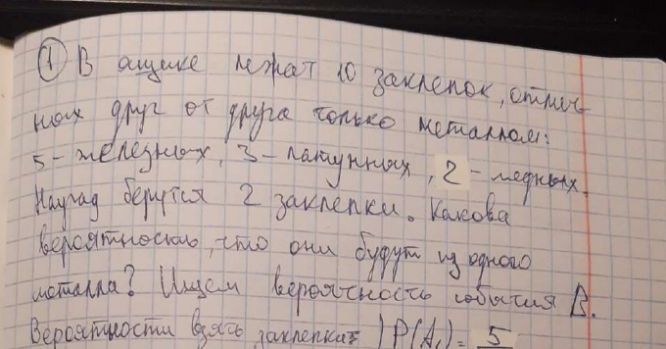 ① В ящике лежат 10 заклепок, отлич-
ных друг от друга только металлом:
5 - железных, 3 - латунных, 2 - медных.
Наугад берутся 2 заклепки. Какова
вероятность, что они будут из одного
металла? Ищем вероятность события B.
Вероятности взять заклепки: P(A₁) = 5